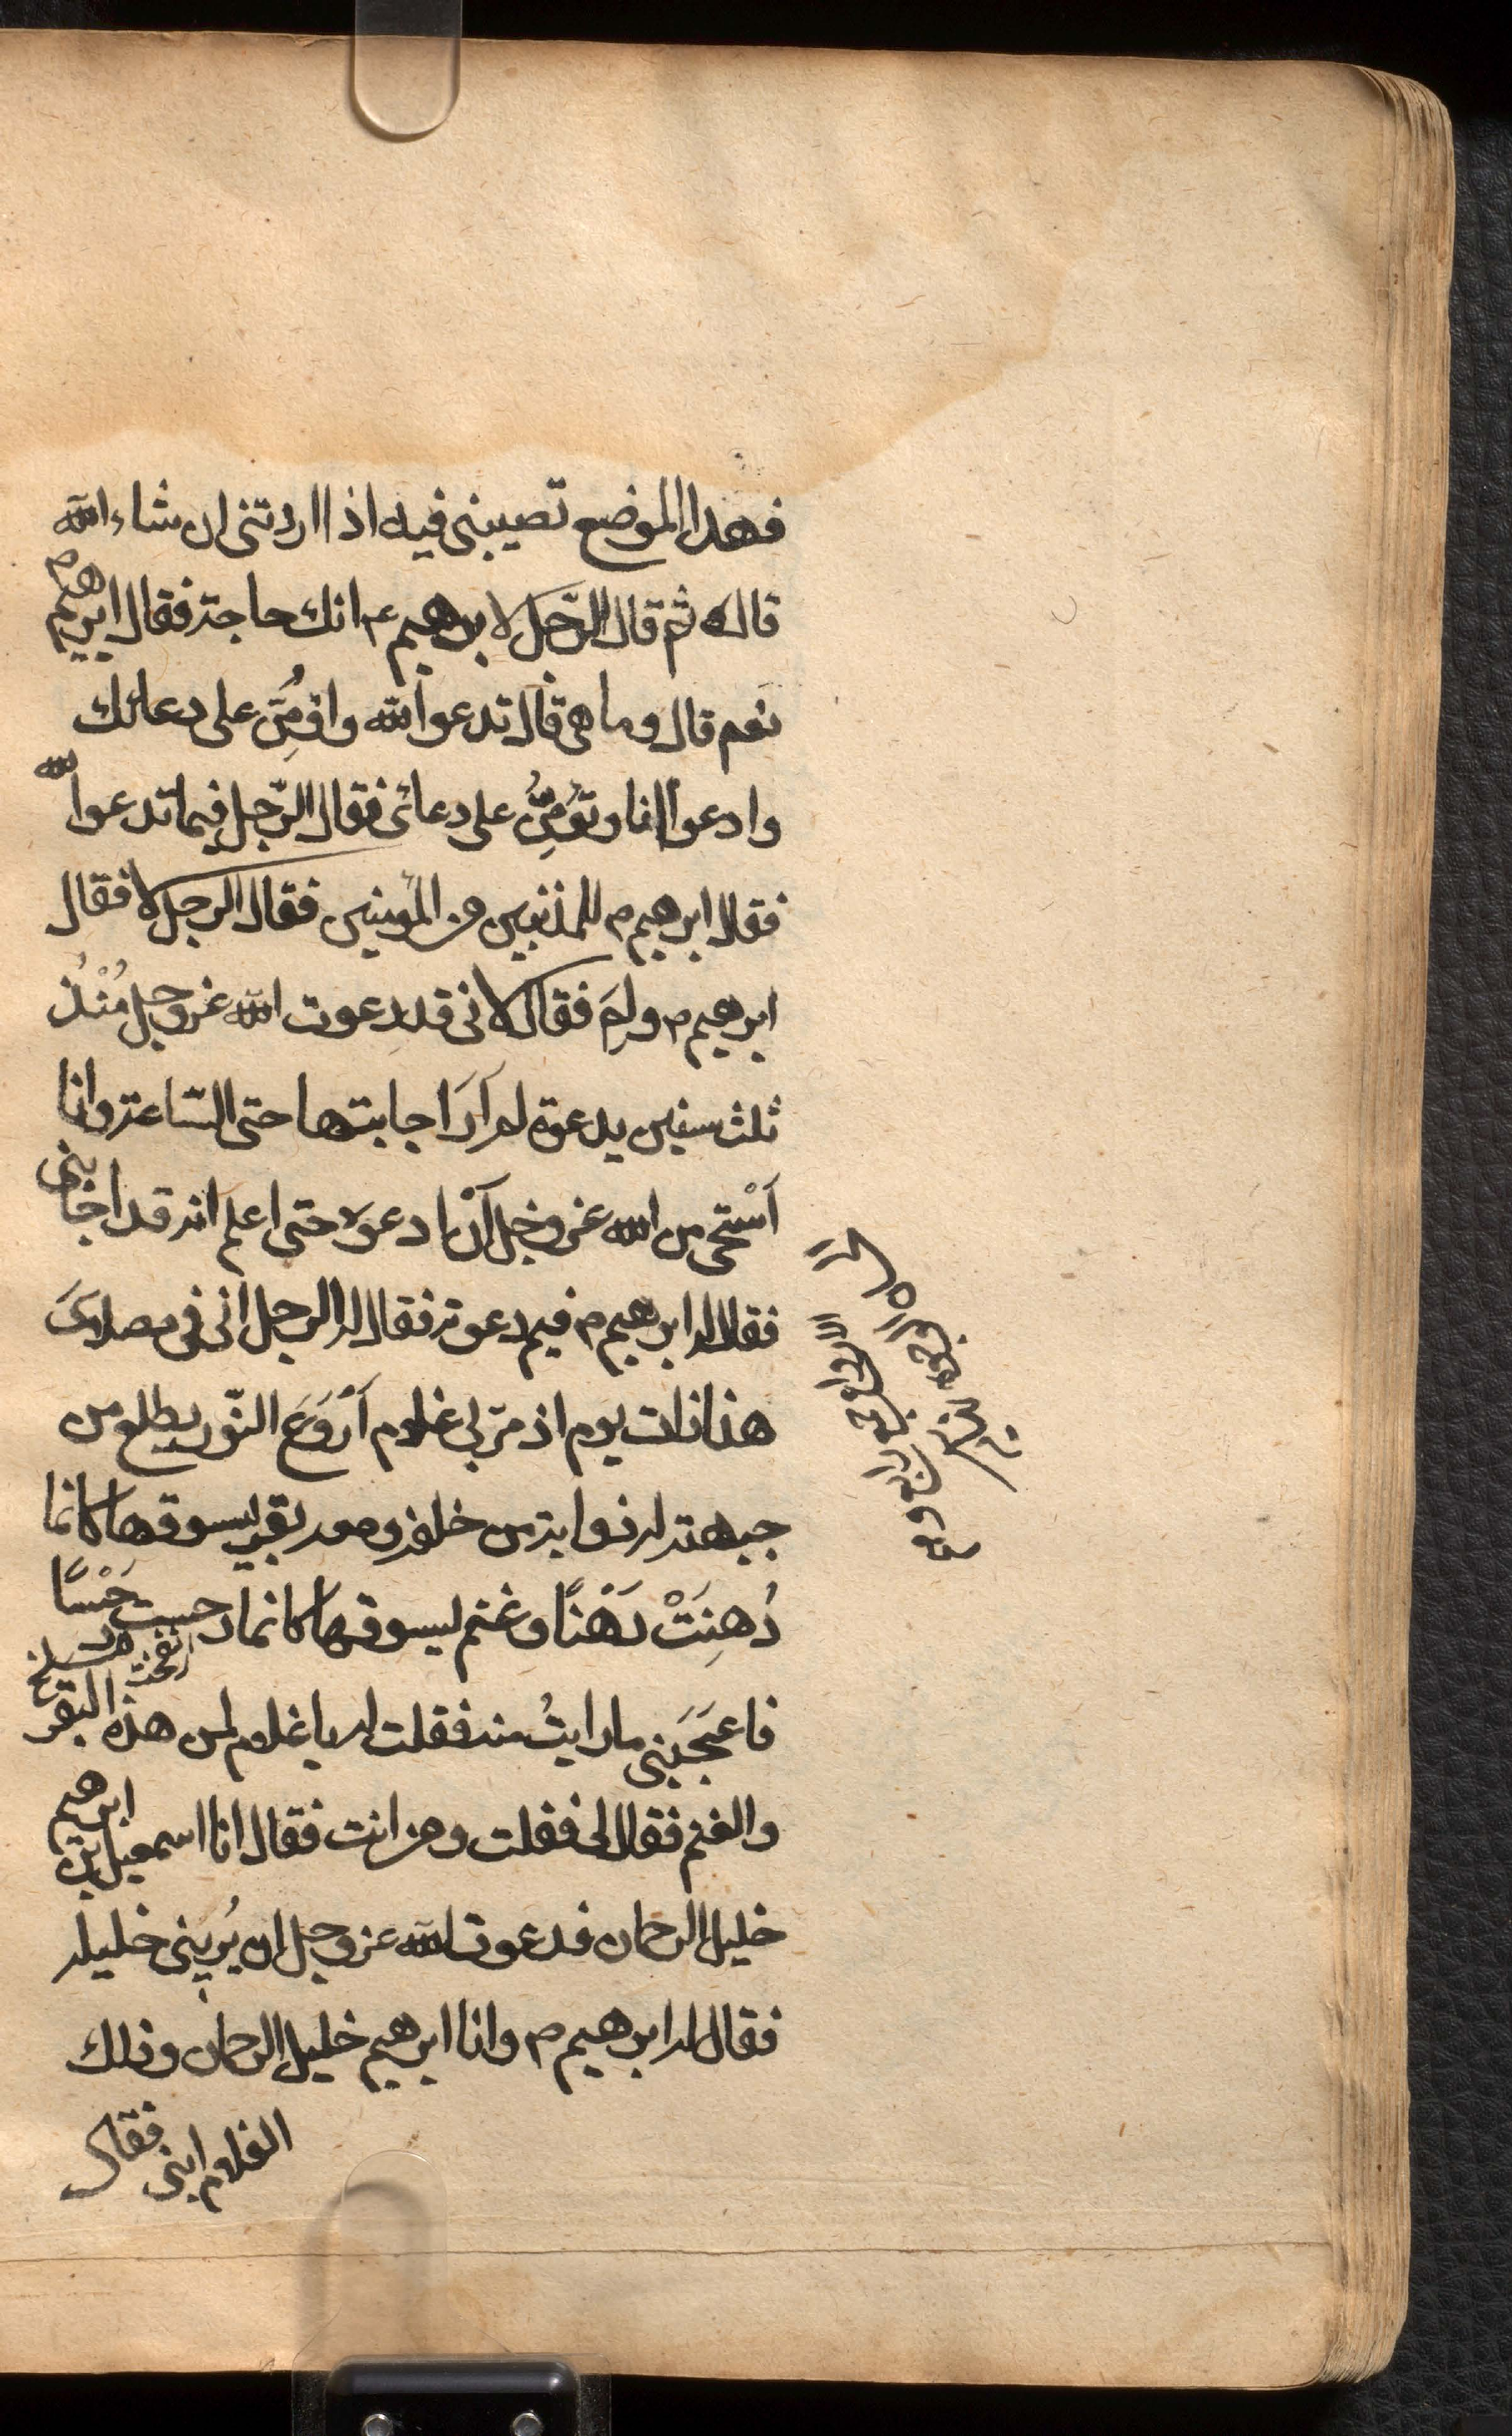 فهذا الموضع تصيبنى فيه اذا اردتنى ان شاء الله
قال ثم قال الرّجل لابرهيم ع انك حاجة فقال ابرهيم م
نعم قال وما هى قال تدعوا الله واؤمِّن على دعائك
وادعوا انا وتؤمِّنُ على دعائى فقال الرّجل فيما تدعوا الله
فقال ابرهيم م للمذنبين من المؤمنين فقال الرجل لا فقال
ابرهيم م ولِمَ فقال لانى قد دعوت الله عز وجل مُنْذُ
ثلث سنين بدعوة لم اَرَ اجابتها حتى السّاعة وانا
اَسْتحى من الله عز وجل اَنْ ادعوه حتى اعلم انه قد اجابنى
فقال له ابرهيم م فيم دعوته فقال له الرجل انى فى مصلاىَ
هذا ذات يوم اذ مرّ بى غلام اَرْوَعَ النّور يطلع من
جبهته له ذوابة من خلفه ومعه بقر يسوقها كانما
دُهِنَتْ دَهْنًا وغنم يسوقها كانما دحست دَحْسًا
فاعجَبَنى ما رايتُ منه فقلت له يا غلام لمن هذه البقر
والغنم فقال لى فقلت ومن انت فقال انا اسمعيل بن ابرهيم
خليل الرحمان فدعوت الله عز وجل ان يُرِيَنى خليله
فقال له ابرهيم م وانا ابرهيم خليل الرحمان وذلك
الغلام ابنى فقال